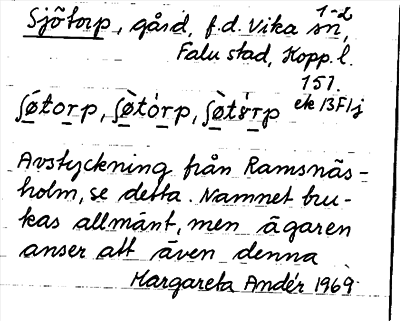 1-2
Sjötorp, gård, f.d. Vika sn,
Falu stad, Kopp. l.
151.
ʃø̀torp, ʃø̀tórp, ʃø̀tórp ek 13F1j
Avstyckning från Ramsnäs-
holm, se detta. Namnet bru-
kas allmänt, men ägaren
anser att även denna
Margareta Andér 1969